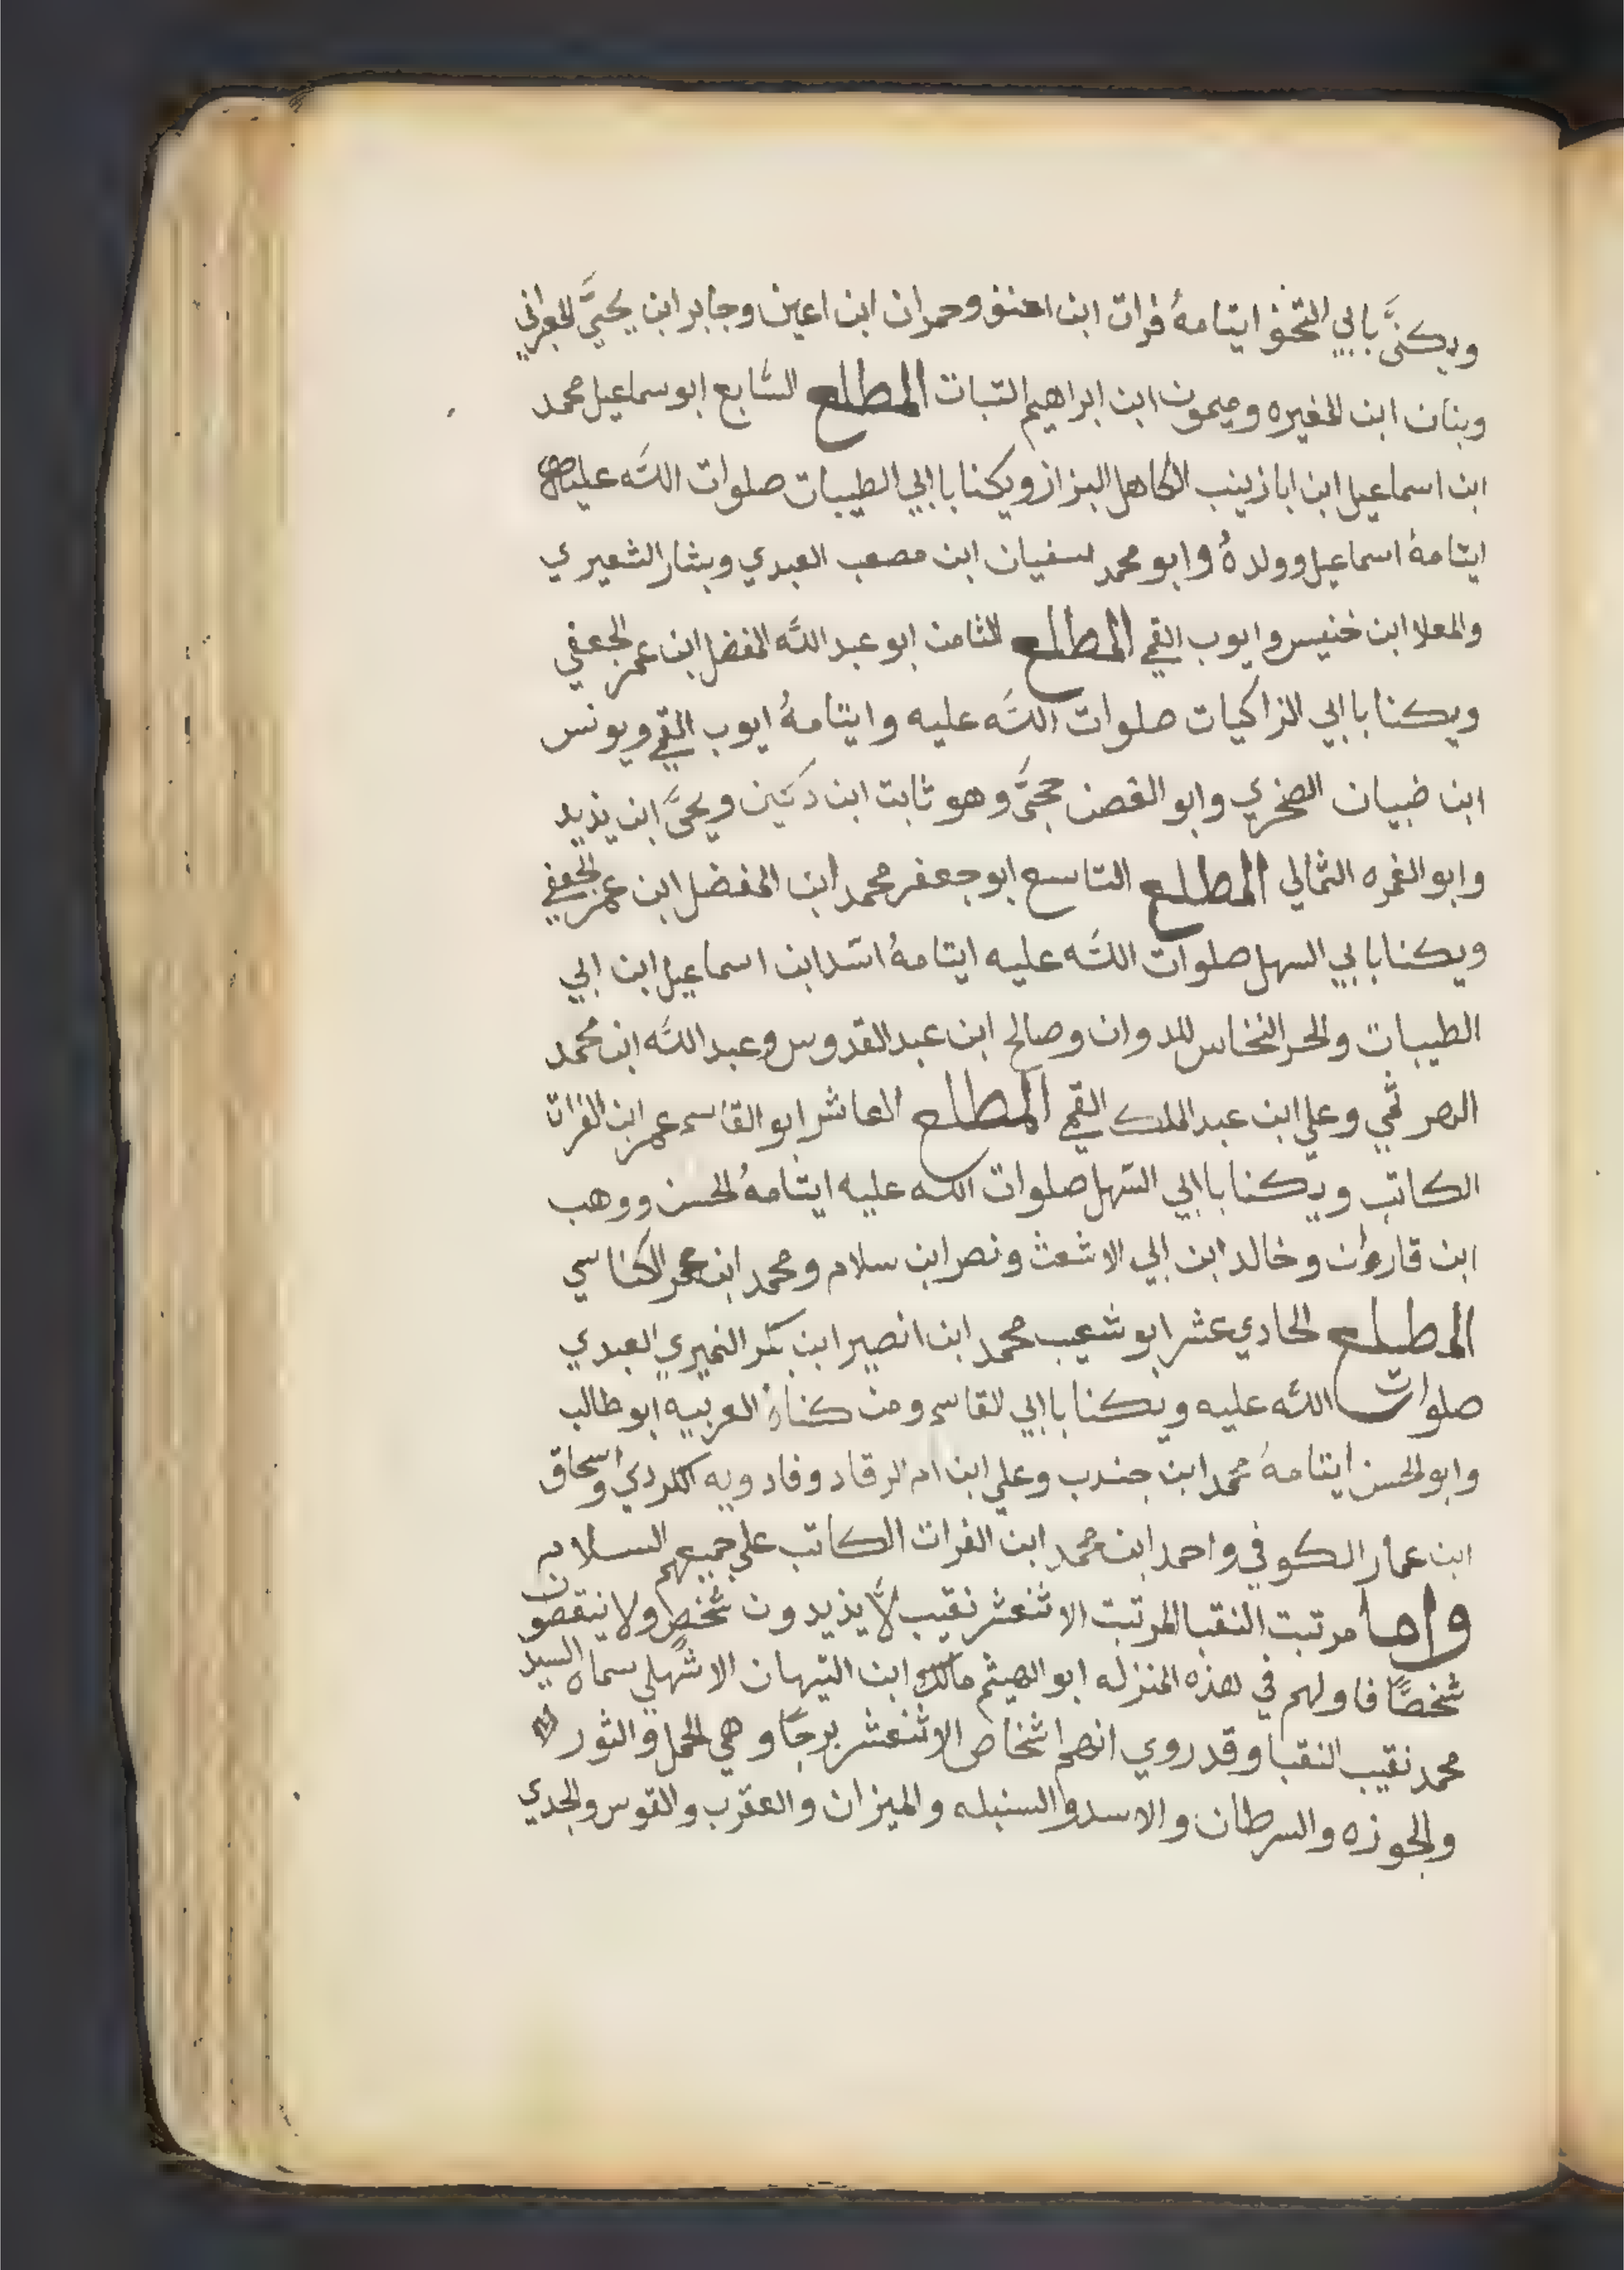 ويكنَّى بابي التحف ايتامهُ فرات ابن احنف وحمران ابن اعين وجابر ابن يحيَّ المعبراني
وبنان ابن المغيره وميمون ابن ابراهيم التبات المطلع السّابع ابو سماعيل محمد
ابن اسماعيل ابن ابا زينب الكاهل البزاز ويكنا باابي الطيبات صلوات اللَّه عليه
ايتامهُ اسماعيل وولدهُ وابو محمد سفيان ابن مصعب العبدي وبشار الشعيري
والمعلا ابن خنيس وايوب القمي المطلع الثامن ابو عبد اللَّه المفضل ابن عمر الجعفي
ويكنا باابي الزاكيات صلوات اللَّه عليه وايتامهُ ايوب القمي ويونس
ابن ضبيان الصخري وابو الغصن جحىَّ وهو ثابت ابن دكين ويحيَّ ابن يذيد
وابو الغمره الثمالي المطلع التاسع ابو جعفر محمد ابن المفضل ابن عمر الجعفي
ويكنا بابي السهل صلوات اللَّه عليه ايتامهُ اسّد ابن اسماعيل ابن ابي
الطيبات والحر النخاس للدوان وصالح ابن عبد القدوس وعبد اللَّه ابن محمد
البصر ثمي وعلي ابن عبد الملك القمي المطلع العاشر ابو القاسم عمر ابن الفرات
الكاتب ويكنا باابي السّهل صلوات اللَّه عليه ايتامهُ الحسن ووهب
ابن قارون وخالد ابن ابي الاشعث ونصر ابن سلام ومحمد ابن عمر الكناسي
المطلع الحادي عشر ابو شعيب محمد ابن انصير ابن بكر النميري العبدي
صلوات اللَّه عليه ويكنا باابي القاسم ومن كناهُ العربيه ابو طالب
وابو الحسن ايتامهُ محمد ابن جندب وعلي ابن ام الرقاد وفادويه الكردي واسحاق
ابن عمار الكوفي واحمد ابن محمد ابن الفرات الكاتب علي جميعهم السلام
واما مرتبت النقبا المرتبت الاثنعشر نقيب لاَّ يذيدون شخصٍ ولا ينقصون
شخصًا فاولهم في هذه المنزله ابو الهيثم مالك ابن التيهان الاشهلي سماه السيد
محمد نقيب النقبا وقد روي انهم اشخاص الاثنعشر برجًا وهي الحمل والثور
والجوزه والسرطان والاسد والسنبله والميزان والعقرب والقوس والجدي